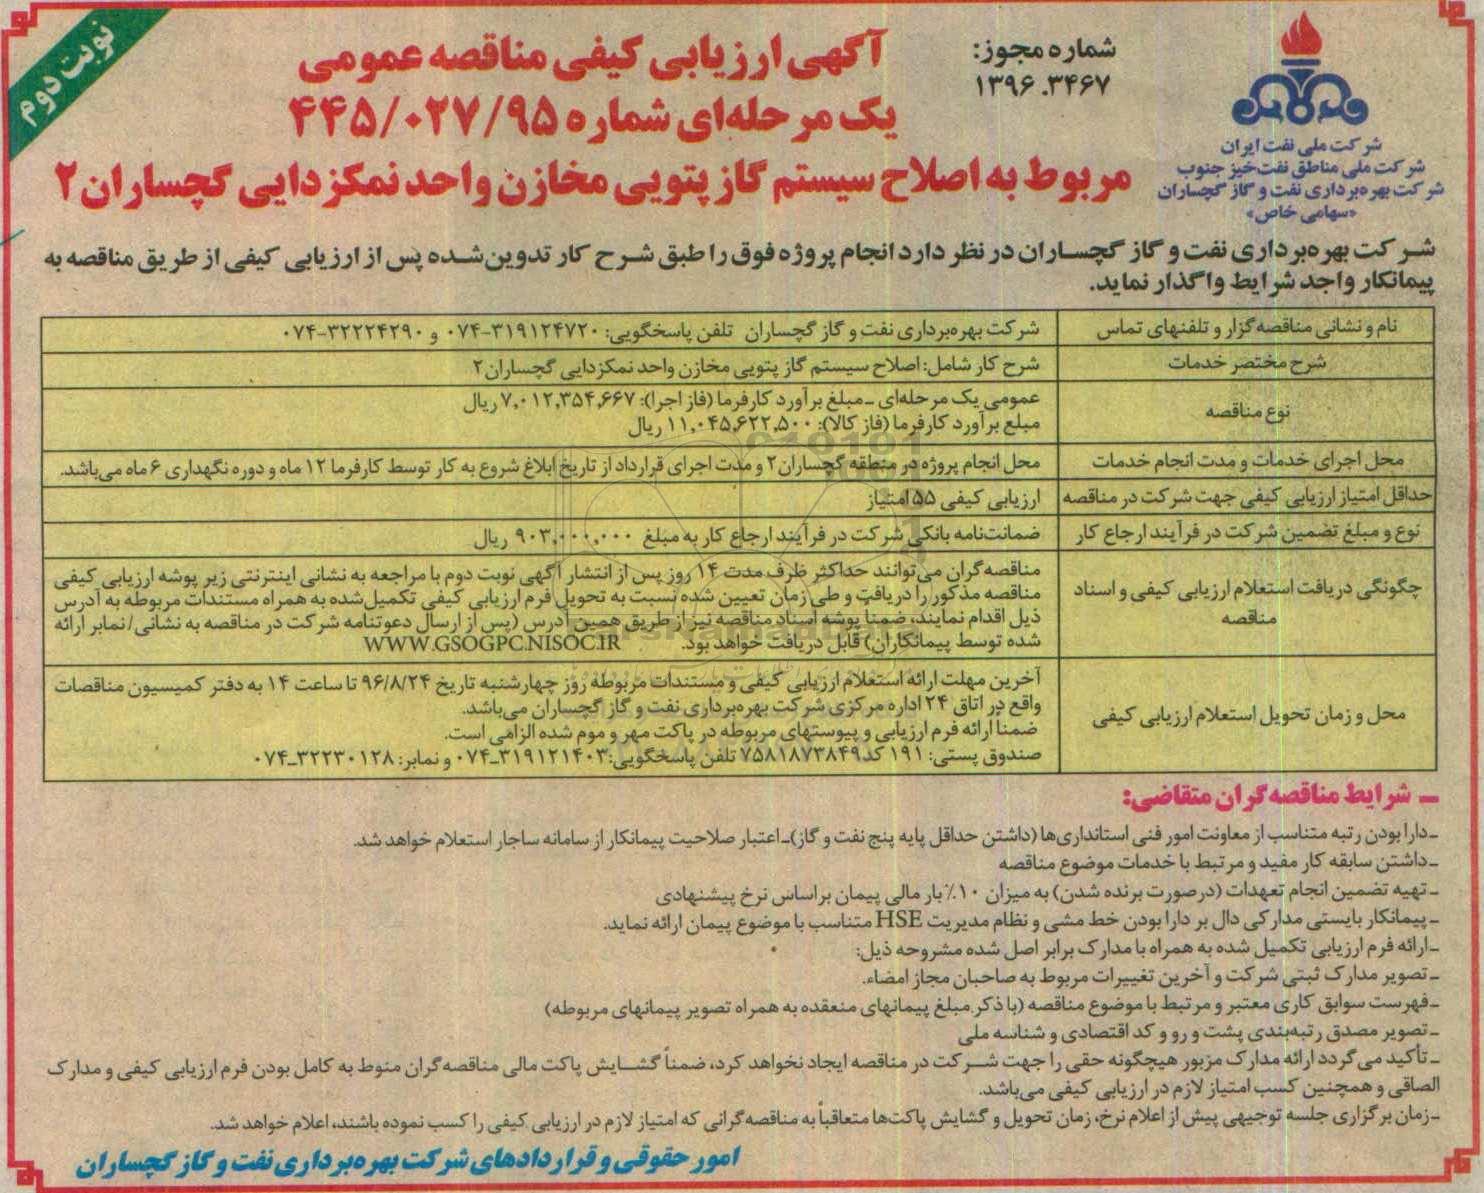 نوبت دوم
شماره مجوز:
۱۳۹۶.۳۴۶۷
آگهی ارزیابی کیفی مناقصه عمومی
یک مرحله‌ای شماره ۴۴۵/۰۲۷/۹۵
مربوط به اصلاح سیستم گاز پتویی مخازن واحد نمکزدایی گچساران ۲
شرکت ملی نفت ایران
شرکت ملی مناطق نفت‌خیز جنوب
شرکت بهره‌برداری نفت و گاز گچساران
«سهامی خاص»
شرکت بهره‌برداری نفت و گاز گچساران در نظر دارد انجام پروژه فوق را طبق شرح کار تدوین‌شده پس از ارزیابی کیفی از طریق مناقصه به
پیمانکار واجد شرایط واگذار نماید.
نام و نشانی مناقصه‌گزار و تلفنهای تماس
شرکت بهره‌برداری نفت و گاز گچساران تلفن پاسخگویی: ۳۱۹۱۲۴۷۲۰-۰۷۴ و ۳۲۲۲۴۲۹۰-۰۷۴
شرح مختصر خدمات
شرح کار شامل: اصلاح سیستم گاز پتویی مخازن واحد نمکزدایی گچساران ۲
نوع مناقصه
عمومی یک مرحله‌ای ـ مبلغ برآورد کارفرما (فاز اجرا): ۷,۰۱۲,۳۵۴,۶۶۷ ریال
مبلغ برآورد کارفرما (فاز کالا): ۱۱,۰۴۵,۶۲۲,۵۰۰ ریال
محل اجرای خدمات و مدت انجام خدمات
محل انجام پروژه در منطقه گچساران ۲ و مدت اجرای قرارداد از تاریخ ابلاغ شروع به کار توسط کارفرما ۱۲ ماه و دوره نگهداری ۶ ماه می‌باشد.
حداقل امتیاز ارزیابی کیفی جهت شرکت در مناقصه
ارزیابی کیفی ۵۵ امتیاز
نوع و مبلغ تضمین شرکت در فرآیند ارجاع کار
ضمانت‌نامه بانکی شرکت در فرآیند ارجاع کار به مبلغ ۹۰۳,۰۰۰,۰۰۰ ریال
چگونگی دریافت استعلام ارزیابی کیفی و اسناد
مناقصه
مناقصه‌گران می‌توانند حداکثر ظرف مدت ۱۴ روز پس از انتشار آگهی نوبت دوم با مراجعه به نشانی اینترنتی زیر پوشه ارزیابی کیفی
مناقصه مذکور را دریافت و طی زمان تعیین شده نسبت به تحویل فرم ارزیابی کیفی تکمیل‌شده به همراه مستندات مربوطه به آدرس
ذیل اقدام نمایند، ضمناً پوشه اسناد مناقصه نیز از طریق همین آدرس (پس از ارسال دعوتنامه شرکت در مناقصه به نشانی/نمابر ارائه
شده توسط پیمانکاران) قابل دریافت خواهد بود. WWW.GSOGPC.NISOC.IR
محل و زمان تحویل استعلام ارزیابی کیفی
آخرین مهلت ارائه استعلام ارزیابی کیفی و مستندات مربوطه روز چهارشنبه تاریخ ۹۶/۸/۲۴ تا ساعت ۱۴ به دفتر کمیسیون مناقصات
واقع در اتاق ۲۴ اداره مرکزی شرکت بهره‌برداری نفت و گاز گچساران می‌باشد.
ضمناً ارائه فرم ارزیابی و پیوستهای مربوطه در پاکت مهر و موم شده الزامی است.
صندوق پستی: ۱۹۱ کد ۷۵۸۱۸۷۳۸۴۹ تلفن پاسخگویی: ۳۱۹۱۲۱۴۰۳ـ۰۷۴ و نمابر: ۳۲۲۳۰۱۲۸ـ۰۷۴
ـ شرایط مناقصه‌گران متقاضی:
ـ دارا بودن رتبه متناسب از معاونت امور فنی استانداری‌ها (داشتن حداقل پایه پنج نفت و گاز) ـ اعتبار صلاحیت پیمانکار از سامانه ساجار استعلام خواهد شد.
ـ داشتن سابقه کار مفید و مرتبط با خدمات موضوع مناقصه
ـ تهیه تضمین انجام تعهدات (درصورت برنده شدن) به میزان ۱۰٪ بار مالی پیمان براساس نرخ پیشنهادی
ـ پیمانکار بایستی مدارکی دال بر دارا بودن خط مشی و نظام مدیریت HSE متناسب با موضوع پیمان ارائه نماید.
ـ ارائه فرم ارزیابی تکمیل شده به همراه با مدارک برابر اصل شده مشروحه ذیل:
ـ تصویر مدارک ثبتی شرکت و آخرین تغییرات مربوط به صاحبان مجاز امضاء.
ـ فهرست سوابق کاری معتبر و مرتبط با موضوع مناقصه (با ذکر مبلغ پیمانهای منعقده به همراه تصویر پیمانهای مربوطه)
ـ تصویر مصدق رتبه‌بندی پشت و رو و کد اقتصادی و شناسه ملی
ـ تأکید می‌گردد ارائه مدارک مزبور هیچگونه حقی را جهت شرکت در مناقصه ایجاد نخواهد کرد، ضمناً گشایش پاکت مالی مناقصه‌گران منوط به کامل بودن فرم ارزیابی کیفی و مدارک
الصاقی و همچنین کسب امتیاز لازم در ارزیابی کیفی می‌باشد.
ـ زمان برگزاری جلسه توجیهی پیش از اعلام نرخ، زمان تحویل و گشایش پاکت‌ها متعاقباً به مناقصه‌گرانی که امتیاز لازم در ارزیابی کیفی را کسب نموده باشند، اعلام خواهد شد.
امور حقوقی و قراردادهای شرکت بهره‌برداری نفت و گاز گچساران